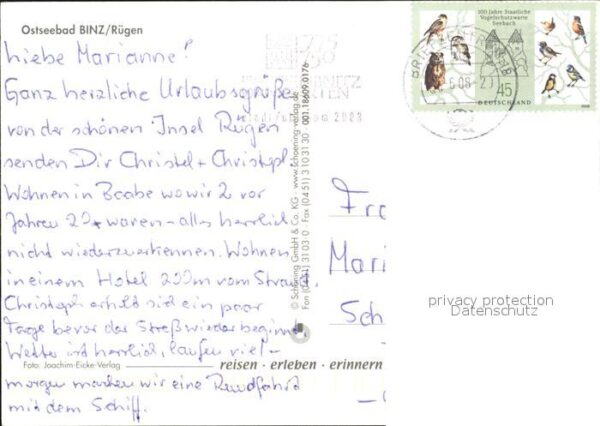 Ostseebad BINZ/Rügen
Liebe Marianne!
Ganz herzliche Urlaubsgrüße
von der schönen Insel Rügen
senden Dir Christel + Christoph.
Wohnen in Baabe wo wir 2 vor
Jahren waren - alles herrlich
nicht wiederzuerkennen. Wohnen
in einem Hotel 200m vom Strand,
Christoph erholt sich ein paar
Tage bevor der Streß wieder beginnt,
Wetter ist herrlich, laufen viel -
Foto: Joachim-Eicke-Verlag
morgen machen wir eine Rundfahrt
mit dem Schiff.
reisen · erleben · erinnern
© Schöning GmbH & Co. KG · www.schoening-verlag.de
Fon (04 51) 31 03 0 · Fax (04 51) 3 10 31 30 001.18609.0176
100 Jahre Staatliche
Vogelschutzwarte
Seebach
45
DEUTSCHLAND
Mari
Sch
privacy protection
Datenschutz